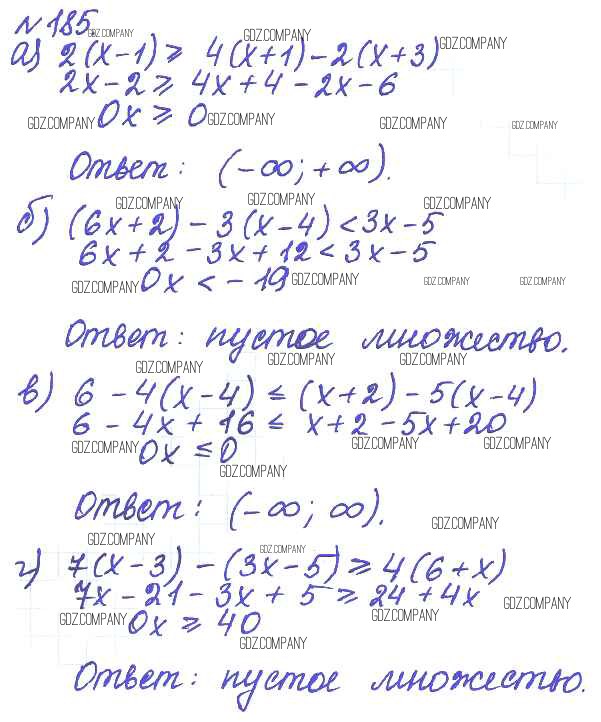 №185.
GDZ.COMPANY GDZ.COMPANY GDZ.COMPANY
а) 2(x-1) ≥ 4(x+1)-2(x+3)
2x-2 ≥ 4x+4-2x-6
0x ≥ 0
GDZ.COMPANY GDZ.COMPANY GDZ.COMPANY GDZ.COMPANY
Ответ: (-∞; +∞).
GDZ.COMPANY GDZ.COMPANY GDZ.COMPANY
б) (6x+2)-3(x-4)<3x-5
6x+2-3x+12<3x-5
0x < -19
GDZ.COMPANY GDZ.COMPANY GDZ.COMPANY GDZ.COMPANY
Ответ: пустое множество.
GDZ.COMPANY GDZ.COMPANY GDZ.COMPANY
в) 6-4(x-4) ≤ (x+2)-5(x-4)
6-4x+16 ≤ x+2-5x+20
GDZ.COMPANY GDZ.COMPANY GDZ.COMPANY
0x ≤ 0
GDZ.COMPANY
Ответ: (-∞; ∞).
GDZ.COMPANY
GDZ.COMPANY GDZ.COMPANY
г) 7(x-3)-(3x-5) ≥ 4(6+x)
7x-21-3x+5 ≥ 24+4x
GDZ.COMPANY GDZ.COMPANY GDZ.COMPANY
0x ≥ 40
GDZ.COMPANY
Ответ: пустое множество.